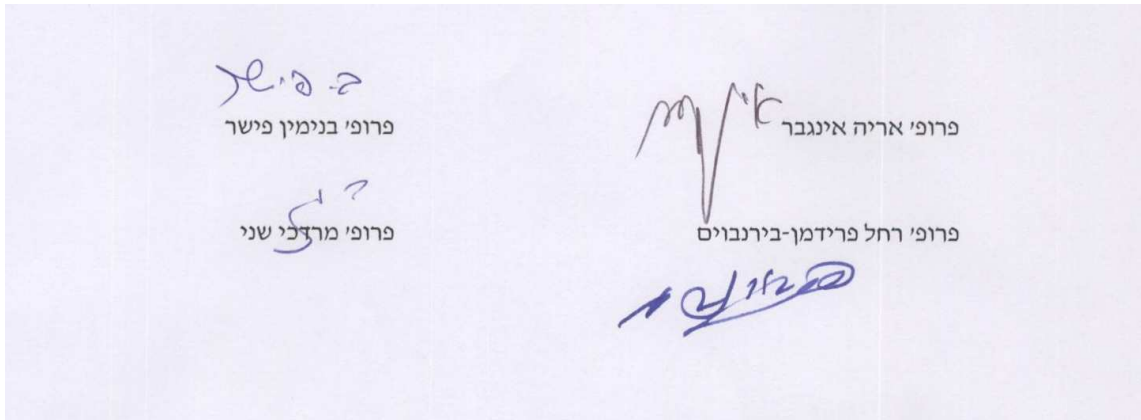 פרופ' אריה אינגבר
פרופ' בנימין פישר
פרופ' רחל פרידמן-בירנבוים
פרופ' מרדכי שני